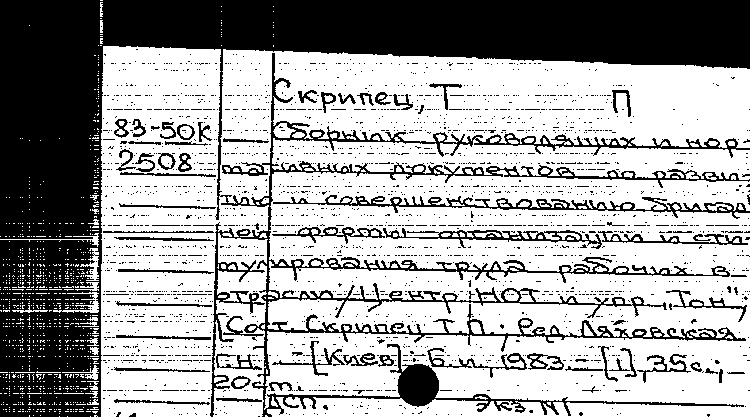 Скрипец, Т П
83-50к Сборник руководящих и нор-
2508 мативных документов по разви-
тию и совершенствованию бригад-
ной формы организации и сти-
мулирования труда рабочих в
отрасли/Центр НОТ и упр. „Тон";
[Сост. Скрипец Т.П.; Ред. Ляховская
Г.Н.]. - [Киев]: Б.и., 1983. - [1], 35с.;
20см.
ДСП. Экз. №1.